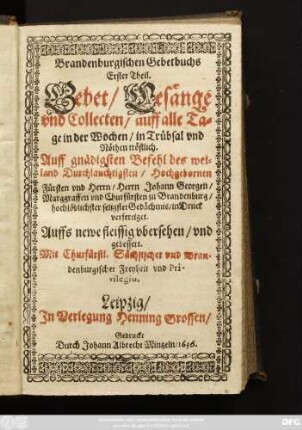 Brandenburgischen Gebetbuchs
Erster Theil.
Gebet/ Gesänge
vnd Collecten/ auff alle Ta-
ge in der Wochen/ in Trübsal vnd
Nöthen tröstlich.
Auff gnädigsten Befehl des wei-
land Durchlauchtigsten/ Hochgebornen
Fürsten vnd Herrn/ Herrn Johann Georgen/
Marggraffen vnd Churfürsten zu Brandenburg/
hochlöblichster seligster Gedächtnus/ in Druck
verfertiget.
Auffs newe fleissig vbersehen/ vnd
gebessert.
Mit Churfürstl. Sächsischer vnd Bran-
denburgischer Freyheit vnd Pri-
vilegio.
Leipzig/
In Verlegung Henning Grossen/
Gedruckt
Durch Johann Albrecht Mintzeln/ 1636.